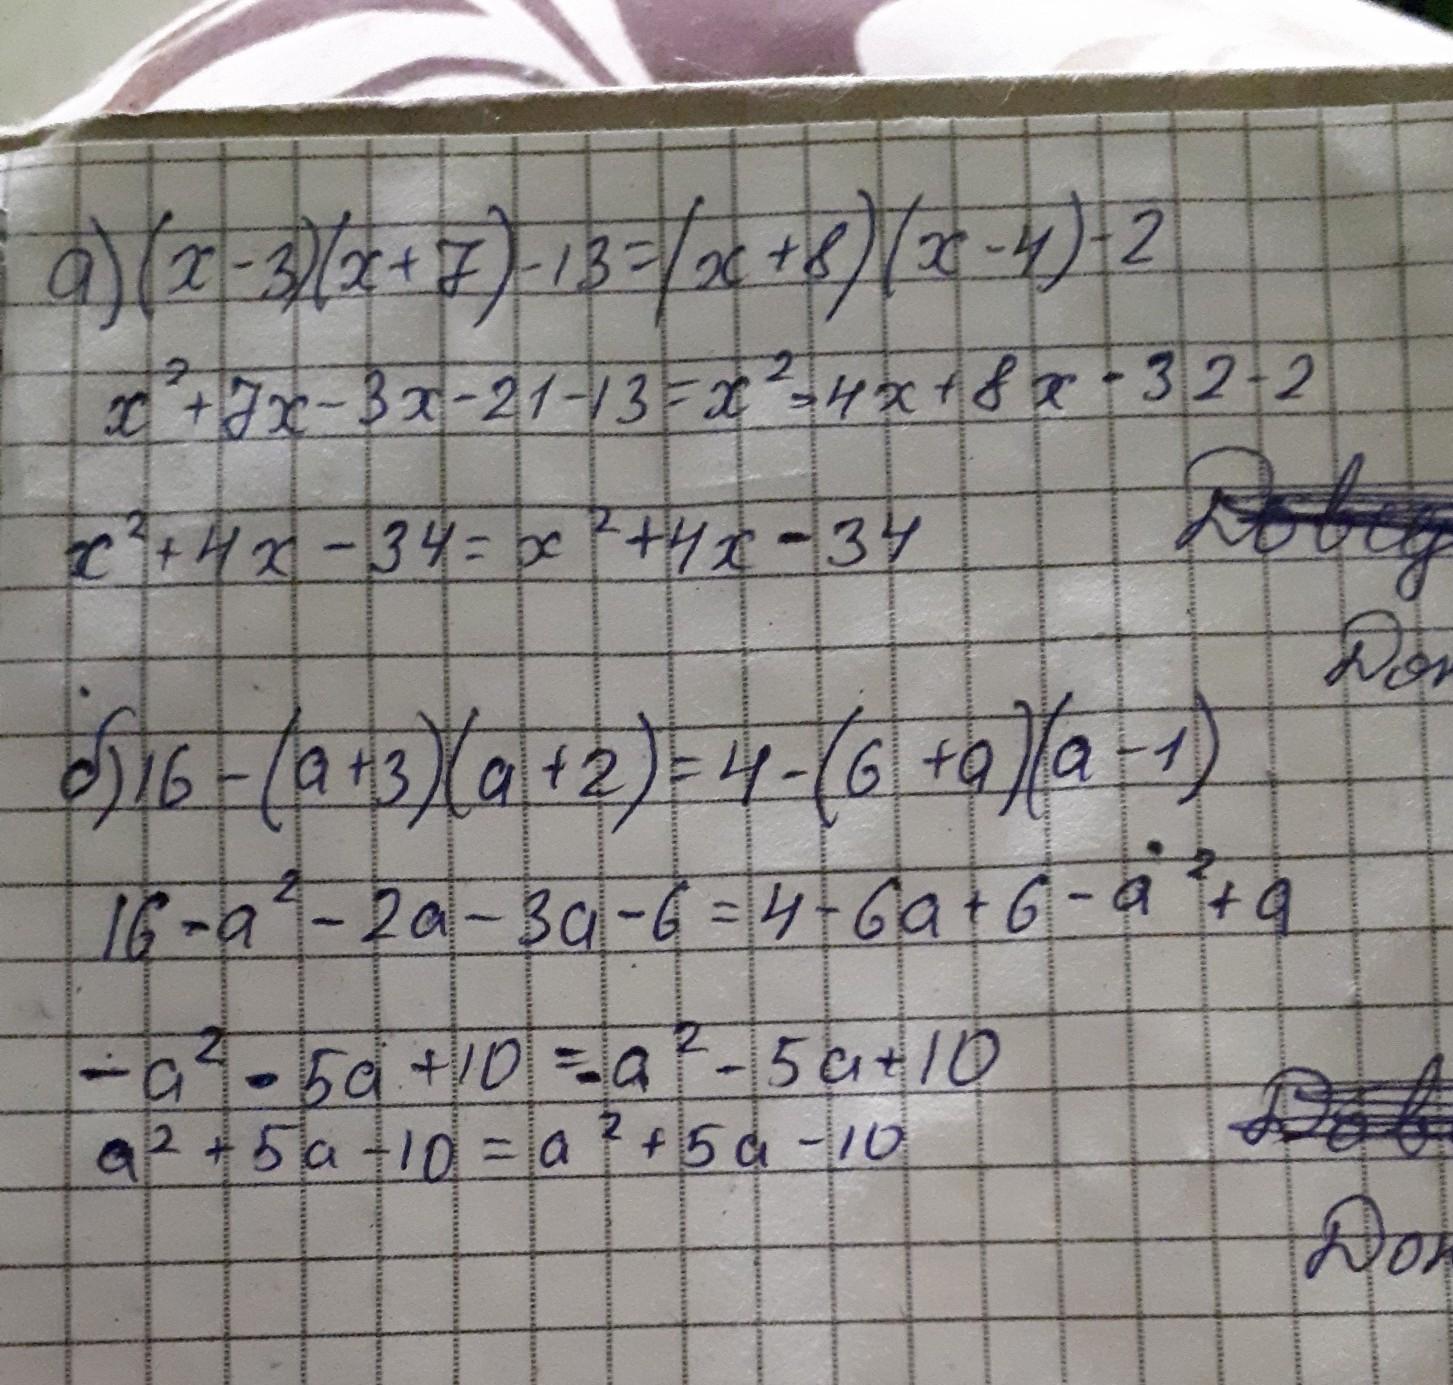 а) (x-3)(x+7)-13=(x+8)(x-4)-2
x²+7x-3x-21-13=x²-4x+8x-32-2
x²+4x-34=x²+4x-34
б) 16-(a+3)(a+2)=4-(6+a)(a-1)
16-a²-2a-3a-6=4-6a+6-a²+a
-a²-5a+10=-a²-5a+10
a²+5a-10=a²+5a-10